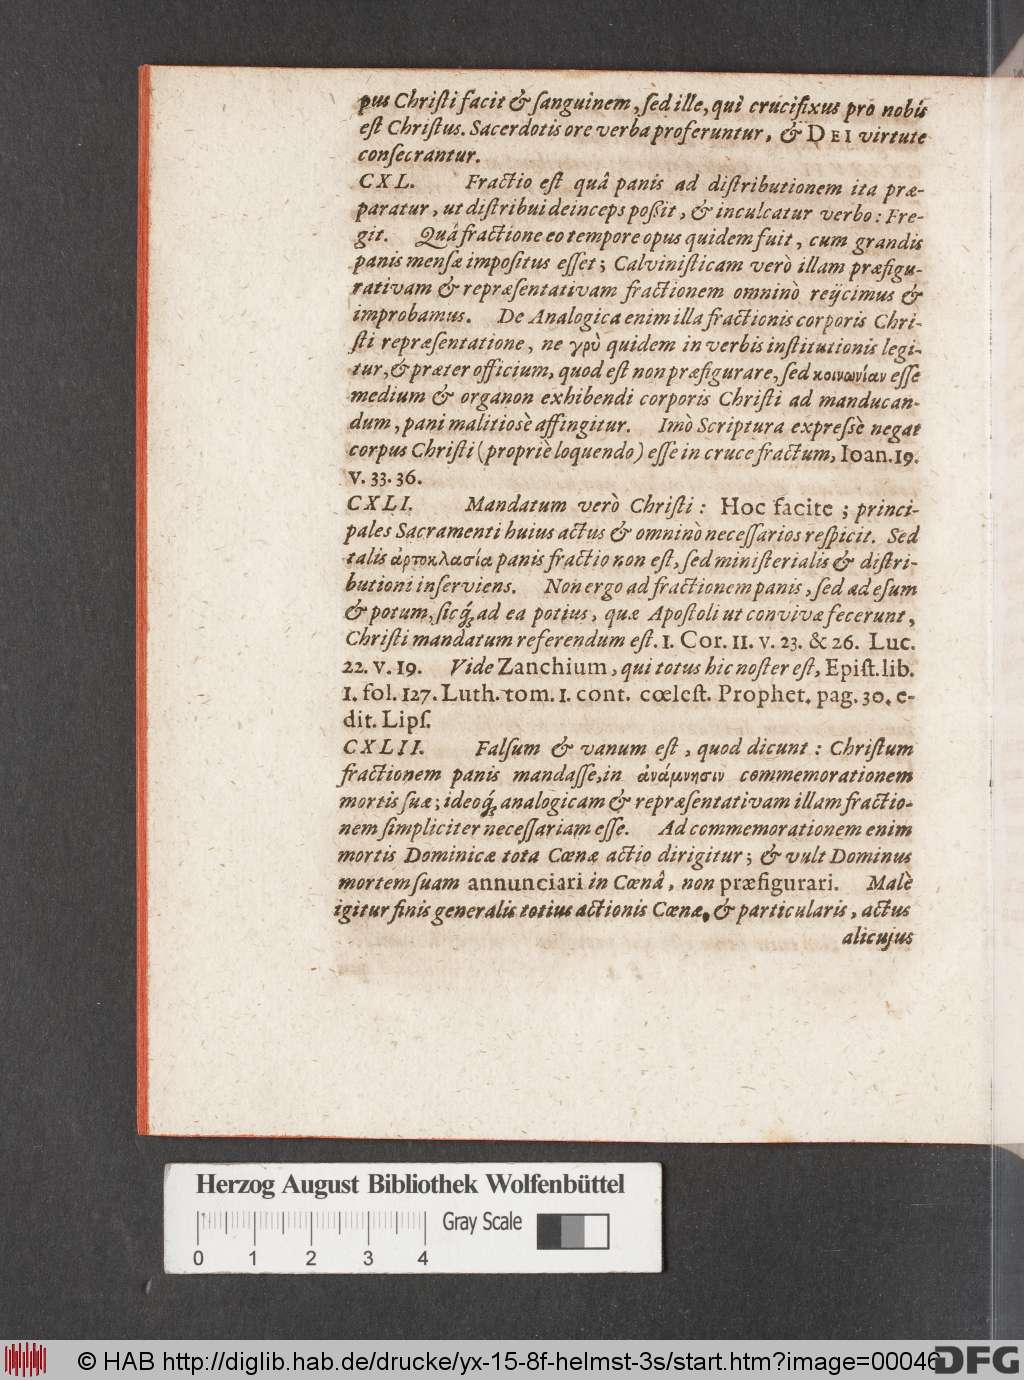 pus Chriſti facit & ſanguinem, ſed ille, qui crucifixus pro nobis
eſt Chriſtus. Sacerdotis ore verba proferuntur, & DEI virtute
conſecrantur.
CXL. Fractio eſt quâ panis ad diſtributionem ita præ-
paratur, ut diſtribui deinceps poßit, & inculcatur verbo: Fre-
git. Quâ fractione eo tempore opus quidem fuit, cum grandis
panis menſæ impoſitus eſſet; Calviniſticam verò illam præfigu-
rativam & repræſentativam fractionem omninò reijcimus &
improbamus. De Analogica enim illa fractionis corporis Chri-
ſti repræſentatione, ne γρὺ quidem in verbis inſtitutionis legi-
tur, & præter officium, quod eſt non præfigurare, ſed κοινωνίαν eſſe
medium & organon exhibendi corporis Chriſti ad manducan-
dum, pani malitiosè affingitur. Imò Scriptura expreſsè negat
corpus Chriſti (propriè loquendo) eſſe in cruce fractum, Ioan. 19.
v. 33. 36.
CXLI. Mandatum verò Chriſti: Hoc facite; princi-
pales Sacramenti huius actus & omninò neceſſarios reſpicit. Sed
talis ἀρτοκλασία panis fractio non eſt, ſed miniſterialis & diſtri-
butioni inſerviens. Non ergo ad fractionem panis, ſed ad eſum
& potum, ſicq́; ad ea potius, quæ Apoſtoli ut convivæ fecerunt,
Chriſti mandatum referendum eſt. 1. Cor. 11. v. 23. & 26. Luc.
22. v. 19. Vide Zanchium, qui totus hic noſter eſt, Epiſt. lib.
1. fol. 127. Luth. tom. 1. cont. cœleſt. Prophet. pag. 30. e-
dit. Lipſ.
CXLII. Falſum & vanum eſt, quod dicunt: Chriſtum
fractionem panis mandaſſe, in ἀνάμνησιν commemorationem
mortis ſuæ; ideoq́; analogicam & repræſentativam illam fractio-
nem ſimpliciter neceſſariam eſſe. Ad commemorationem enim
mortis Dominicæ tota Cœnæ actio dirigitur; & vult Dominus
mortem ſuam annunciari in Cœnâ, non præfigurari. Malè
igitur finis generalis totius actionis Cœnæ, & particularis, actus
alicujus
Herzog August Bibliothek Wolfenbüttel
Gray Scale
0 1 2 3 4
© HAB http://diglib.hab.de/drucke/yx-15-8f-helmst-3s/start.htm?image=00046
DFG